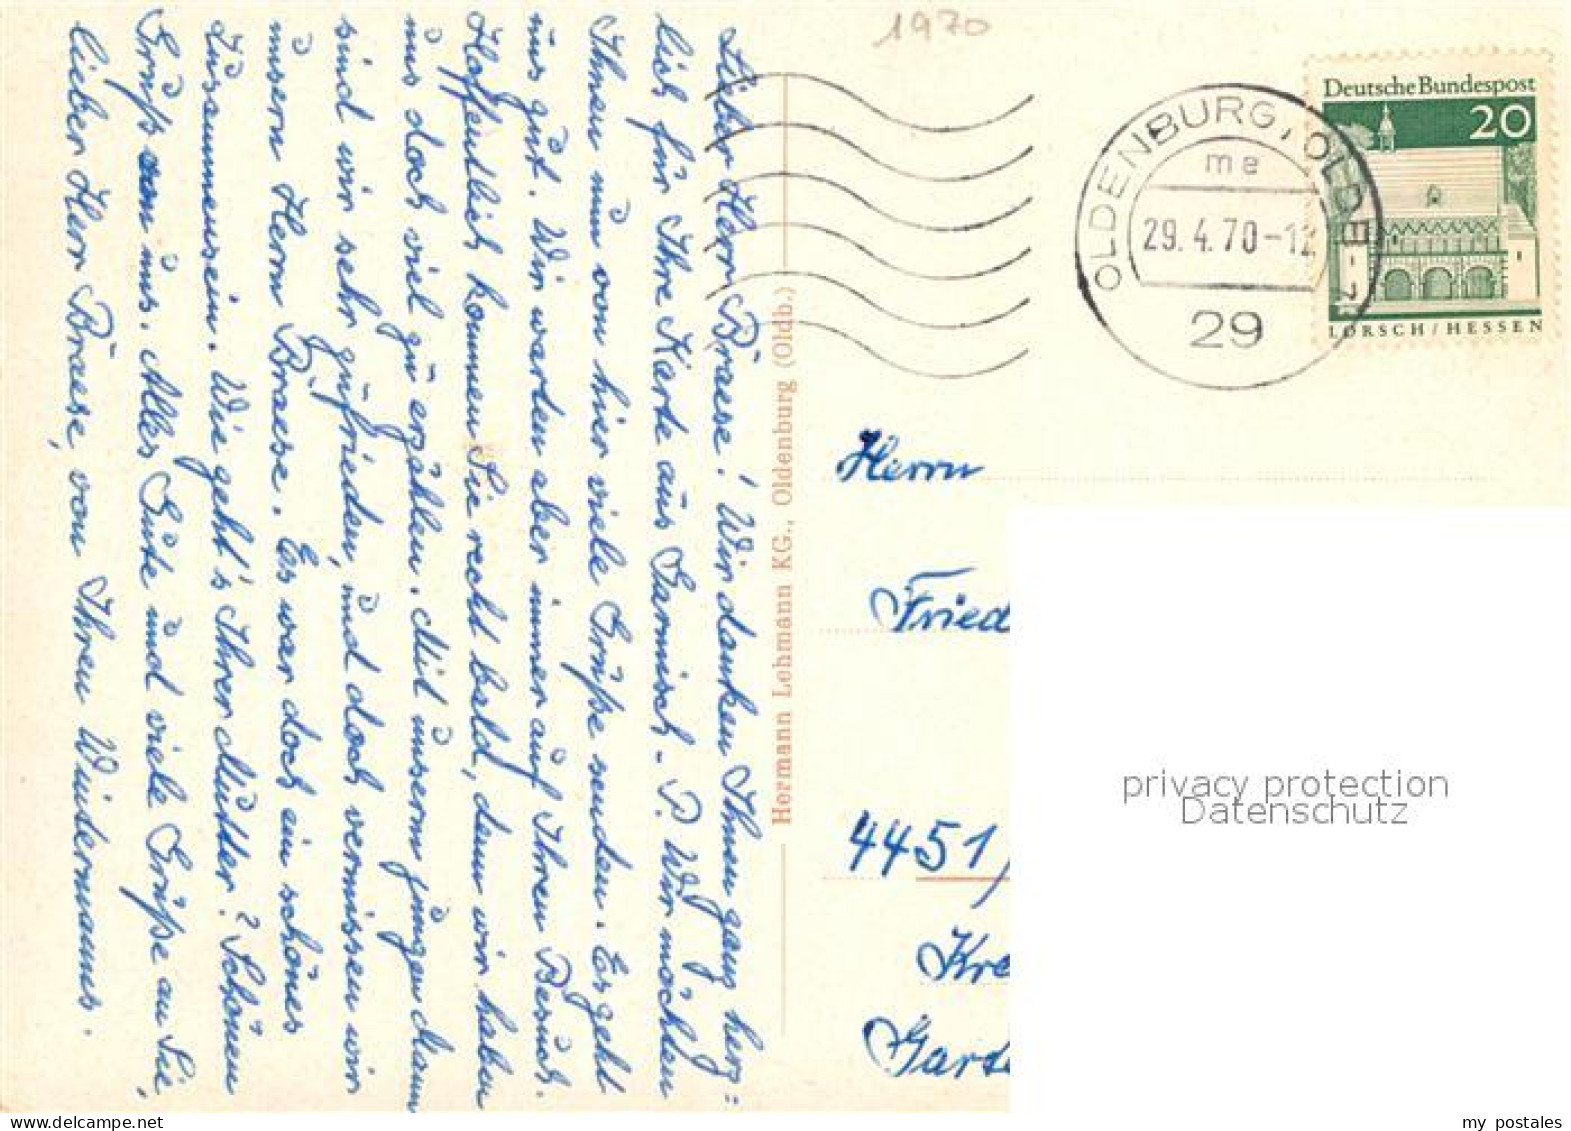 1970
Deutsche Bundespost
20
LORSCH/HESSEN
OLDENBURG, OLDB
me
29.4.70-12
29
Lieber Herr Braese! Wir danken Ihnen ganz herz=
lich für Ihre Karte aus Garmisch-P. Wir möchten
Ihnen nun von hier viele Grüße senden. Es geht
uns gut. Wir warten aber immer auf Ihren Besuch.
Hoffentlich kommen Sie recht bald, denn wir haben
uns doch viel zu erzählen. Mit unserm jungen Mann
sind wir sehr zufrieden, und doch vermissen wir
unsern Herrn Braese. Es war doch ein schönes
Zusammensein. Wie geht's Ihrer Mutter? Schönen
Gruß von uns. Alles Gute und viele Grüße an Sie,
lieber Herr Braese, von Ihren Wintermanns.
Hermann Lehmann KG., Oldenburg (Oldb.)
Herrn
Fried
4451/
Kre
Garte
privacy protection
Datenschutz
my_postales